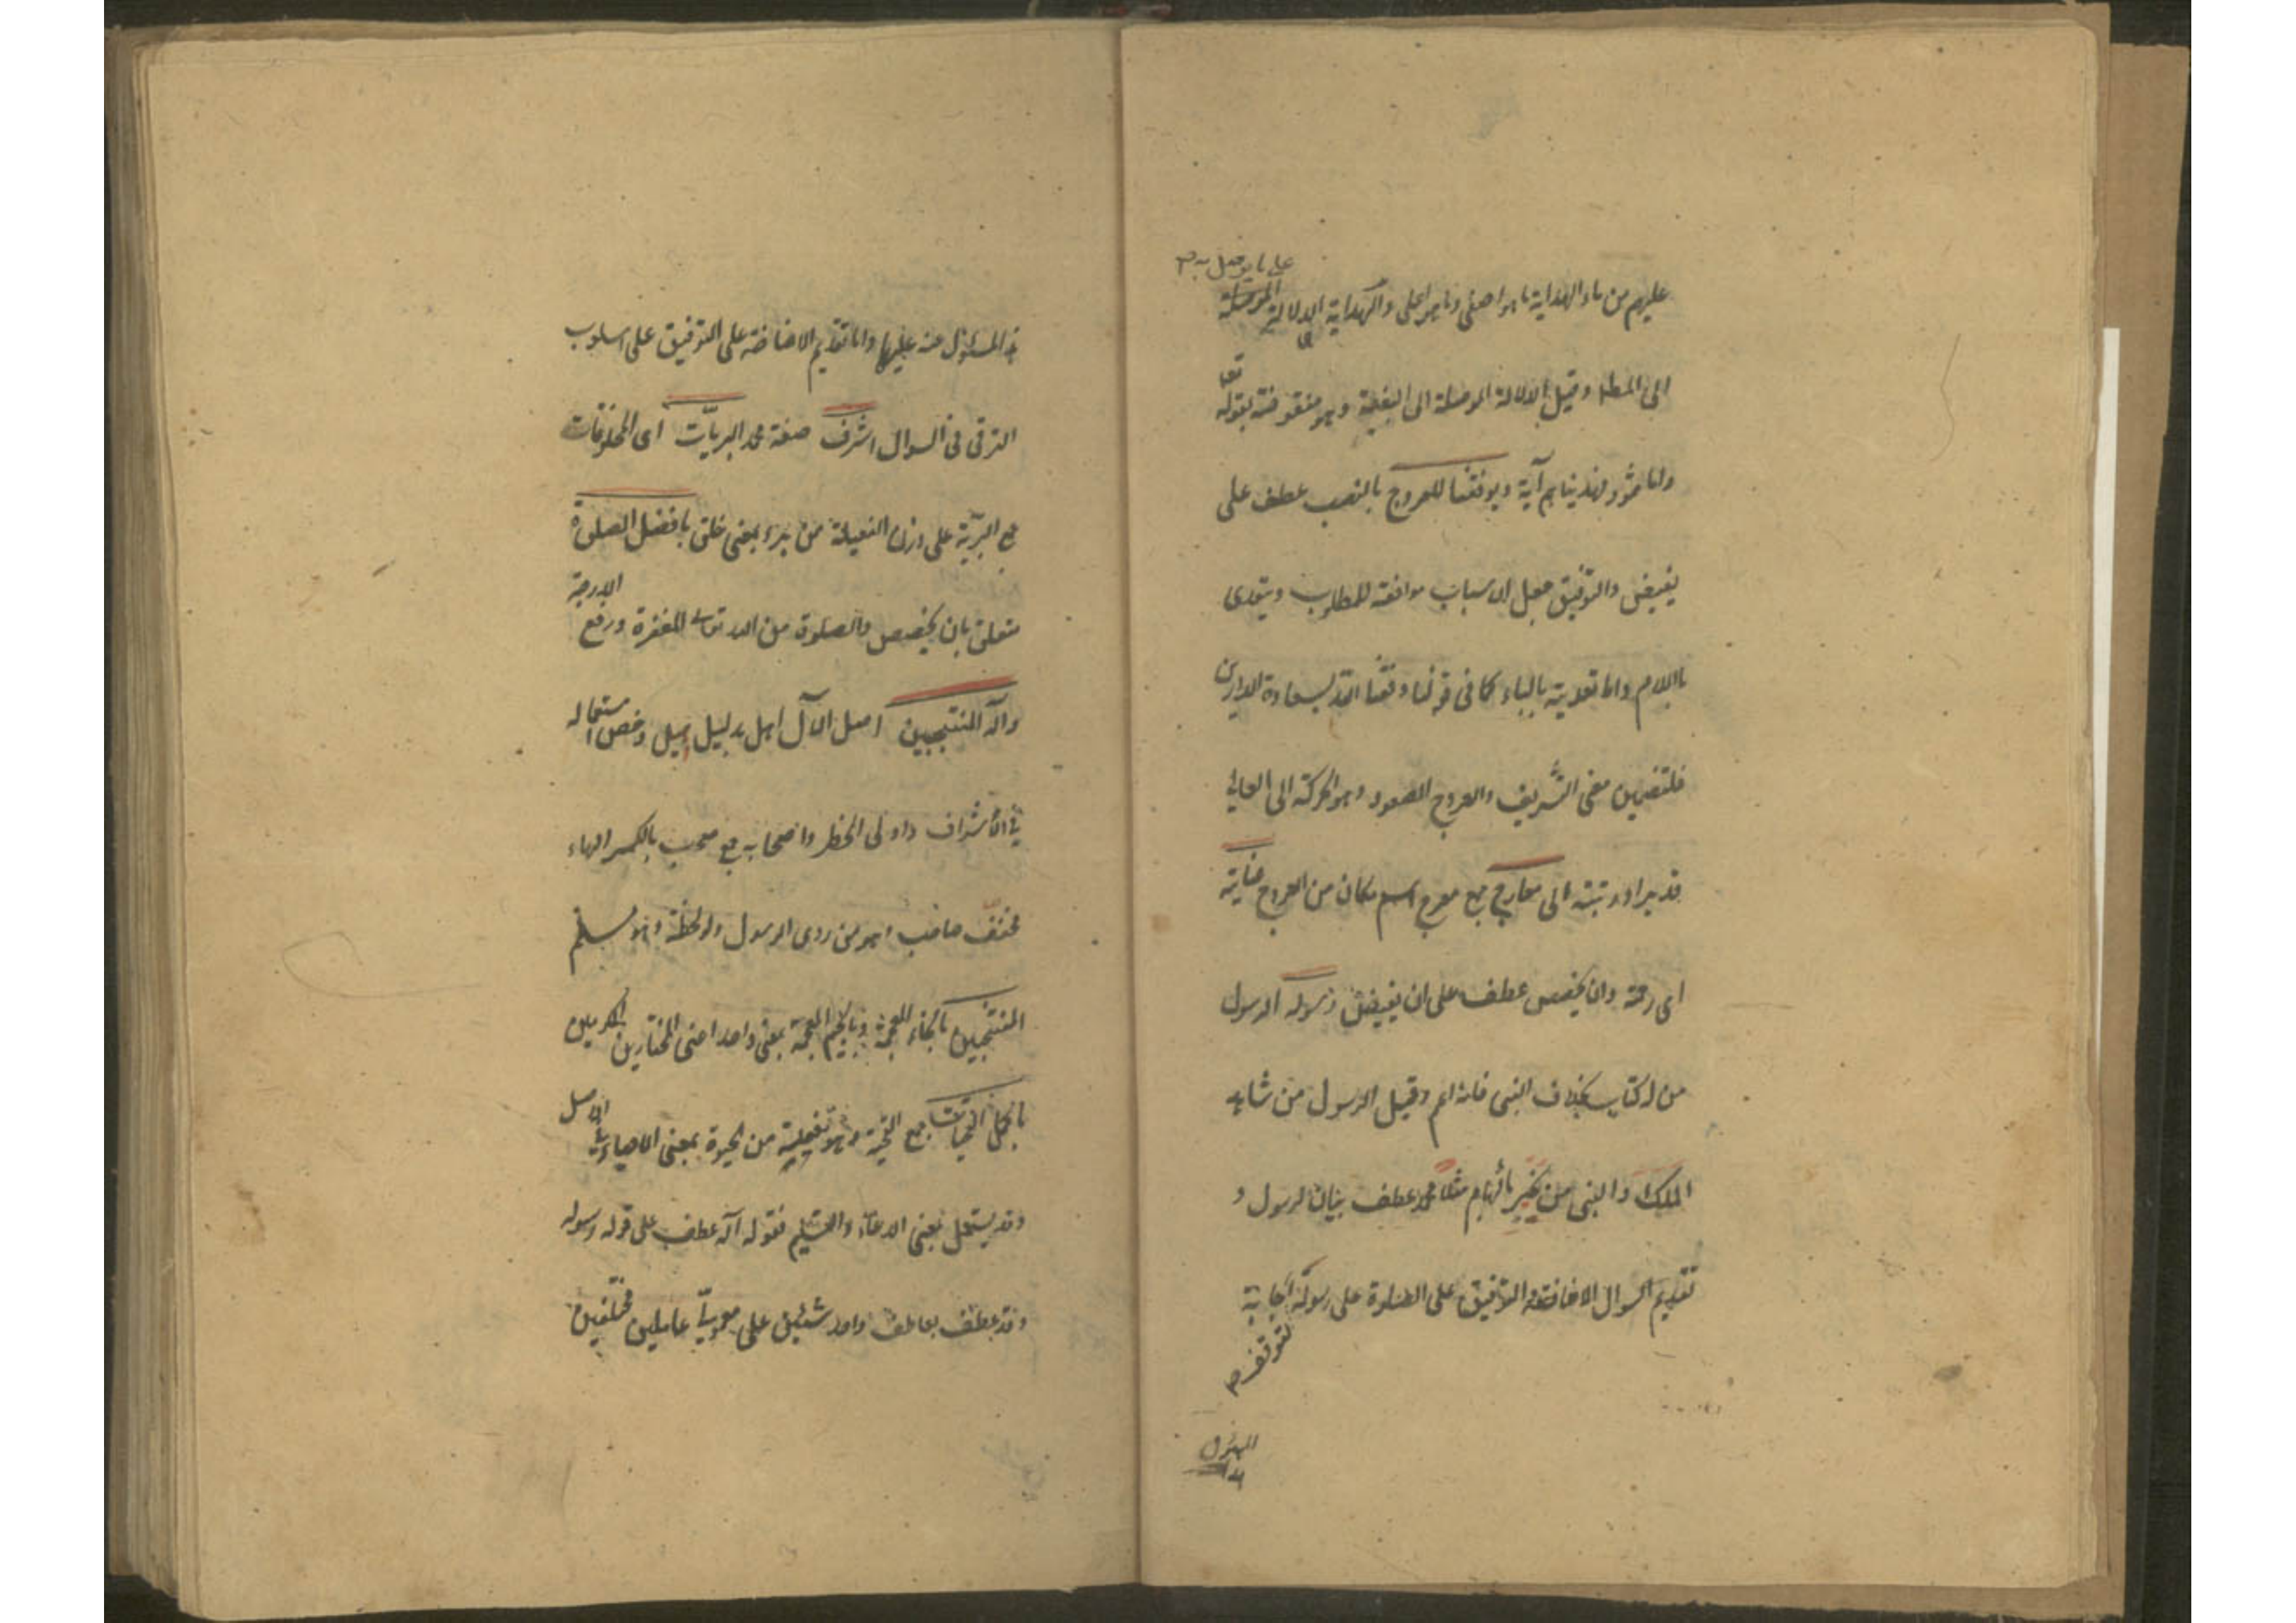 على ما يوصل به
عليهم من ماء الهداية ما هو اصفى وما هو احلى والهداية الدلالة الموصلة
الى المط وقيل الدلالة الموصلة الى البغية وهو منقوضة بقوله تعا
واما ثمود فهديناهم آية ويوفقنا للعروج بالنصب عطف على
يفيض والتوفيق جعل الاسباب موافقة للمطلوب ويتعدى
باللام واما تعديته بالباء كما فى قولنا وفقنا الله لسعادة الدارين
فلتضمين معنى التشريف والعروج الصعود وهو الحركة الى العالى
قدرا ورتبة الى معارج جمع معرج اسم مكان من العروج عنايته
اى رحمة وان يخصص عطف على ان يفيض رسوله الرسول
من له كتاب بخلاف النبى فانه اعم وقيل الرسول من شاهد
الملك والنبى من يخبر بالهام مثلا محمد عطف بيان لرسول و
تقديم السوال الاضافة والتوفيق على الصلوة على رسوله اجابة
لتوقف
المسؤل
المسؤل عنه عليها واما تقديم الاضافة على التوفيق على اسلوب
الترقى فى السوال اشرف صفة محمد البريّات اى المخلوقات
جمع البرية على وزن الفعيلة من برء بمعنى خلق بافضل الصلوة
متعلق بان يخصص والصلوة من الله تعالى المغفرة ورفع الدرجة
وآله المنتجبين اصل الآل اهل بدليل اهيل وخص استعماله
فى الاشراف واولى الخطر واصحابه جمع صحب بالكسر الهاء
مخفف صاحب وهو من روى الرسول ولو لحظة وهو مسلم
المنتخبين بالخاء المعجمة وبالجيم المعجمة بمعنى واحد اعنى المختارين المكرمين
باكمل التحيات جمع التحية وهو تفعيلة من الحيوة بمعنى الاحياء فى الاصل
وقد يستعمل بمعنى الدعاء والتسليم فقوله آله عطف على قوله رسوله
وقد عطف بعاطف واحد شيئين على معمولى عاملين مختلفين